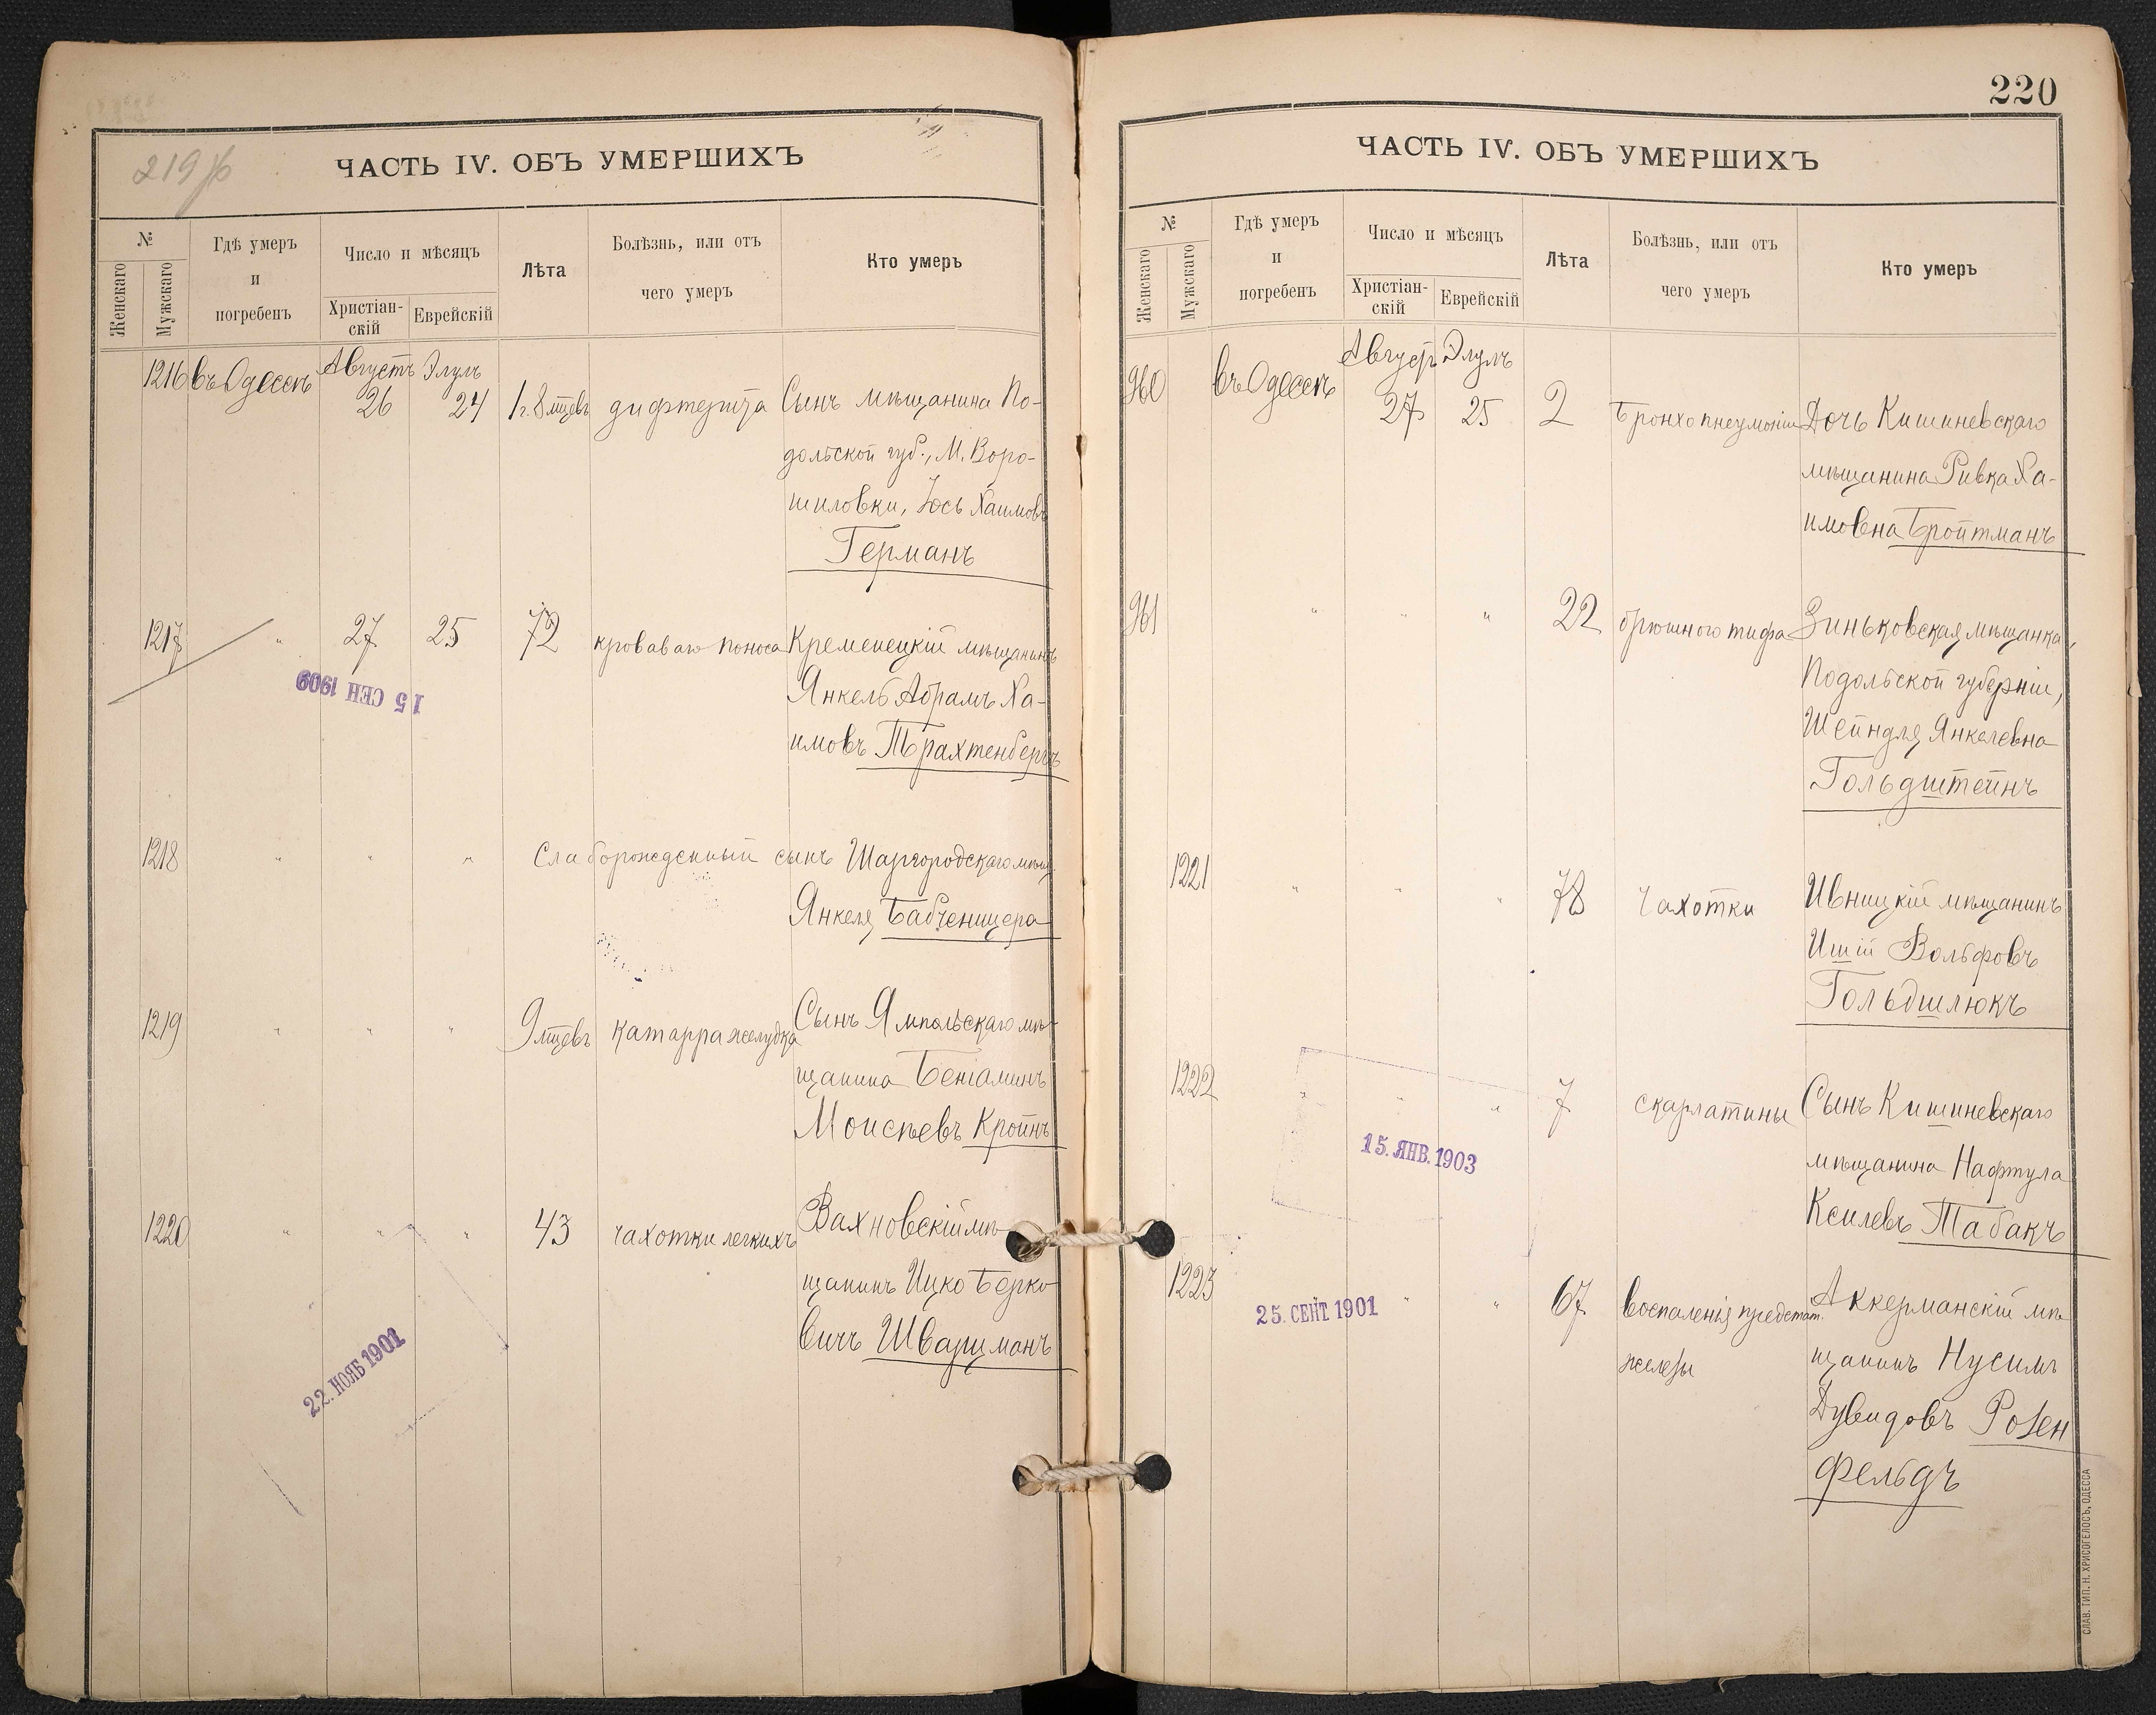 219 об
ЧАСТЬ IV. ОБЪ УМЕРШИХЪ
№
Женскаго
Мужскаго
Гдѣ умеръ
и
погребенъ
Число и мѣсяцъ
Христіан-
скій
Еврейскій
Лѣта
Болѣзнь, или отъ
чего умеръ
Кто умеръ
1216 въ Одессѣ Августъ Элулъ
26 24 1 г. 8 мцевъ дифтерита Сынъ мѣщанина По-
дольской губ., М. Воро-
шиловки, Іось Хаимовъ
Германъ
1217 " 27 25 72 кроваваго поноса Кременецкій мѣщанинъ
Янкель Абрамъ Ха-
имовъ Трахтенбергъ
15 СЕН 1909
1218 " " " Слаборожденный сынъ Шаргородскаго мѣщ.
Янкеля Бабченицера
1219 " " " 9 мцевъ катарра желудка Сынъ Ямпольскаго мѣ-
щанина Беніаминъ
Моисѣевъ Кройнъ
1220 " " " 43 чахотки легкихъ Вахновскій мѣ-
щанинъ Ицко Берко-
вичъ Шварцманъ
22. НОЯБ 1901
220
ЧАСТЬ IV. ОБЪ УМЕРШИХЪ
№
Женскаго
Мужскаго
Гдѣ умеръ
и
погребенъ
Число и мѣсяцъ
Христіан-
скій
Еврейскій
Лѣта
Болѣзнь, или отъ
чего умеръ
Кто умеръ
960 въ Одессѣ Август Элулъ
27 25 2 Бронхопнеумоніи Дочь Кишиневскаго
мѣщанина Ривка Ха-
имовна Бройтманъ
961 " " " 22 брюшного тифа Зиньковская мѣщанка,
Подольской губерніи,
Шейндля Янкелевна
Гольдштейнъ
1221 " " " 78 чахотки Ивницкій мѣщанинъ
Ишій Вольфовъ
Гольдшлюкъ
1222 " " " 7 скарлатины Сынъ Кишиневскаго
мѣщанина Нафтула
Ксилевъ Табакъ
15. ЯНВ. 1903
1223 " " 67 воспаленія предстат. Аккерманскій мѣ-
железы щанинъ Нусимъ
Дувидовъ Розен
фельдъ
25. СЕНТ 1901
СЛАВ. ТИП. Н. ХРИСОГЕЛОСЪ, ОДЕССА